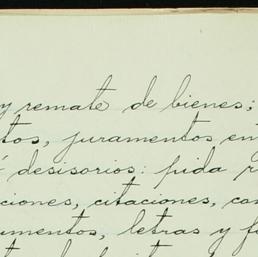 y remate de bienes;
tos, juramentos en
desisorios: pida r
ciones, citaciones, con
umentos, letras y f